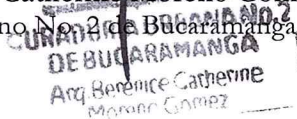 no No. 2 de Bucaramanga
CURADURIA URBANA NO.2
DE BUCARAMANGA
Arq. Berenice Catherine
Moreno Gomez